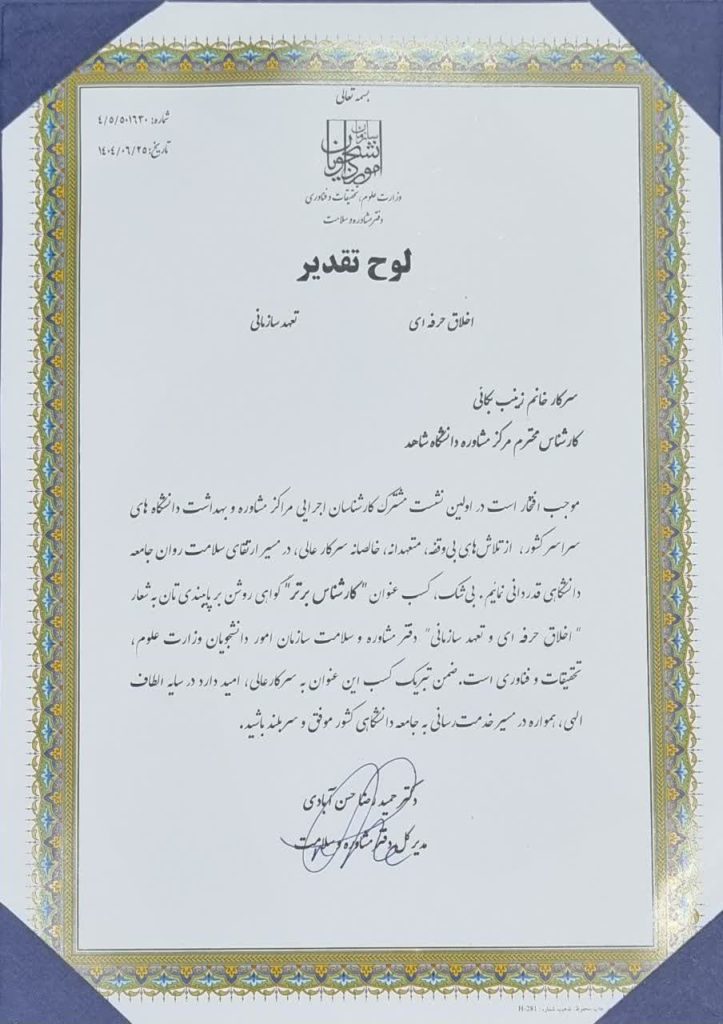 بسمه تعالی
شماره: ۴/۵/۵۰۱۶۳۰
تاریخ: ۱۴۰۴/۰۶/۲۵
سازمان امور دانشجویان
وزارت علوم، تحقیقات و فناوری
دفتر مشاوره و سلامت
لوح تقدیر
اخلاق حرفه ای تعهد سازمانی
سرکار خانم زینب بکائی
کارشناس محترم مرکز مشاوره دانشگاه شاهد
موجب افتخار است در اولین نشست مشترک کارشناسان اجرایی مراکز مشاوره و بهداشت دانشگاه های
سراسر کشور، از تلاش‌های بی‌وقفه، متعهدانه، خالصانه سرکار عالی، در مسیر ارتقای سلامت روان جامعه
دانشگاهی قدردانی نمائیم. بی‌شک، کسب عنوان "کارشناس برتر" گواهی روشن بر پایبندی تان به شعار
" اخلاق حرفه ای و تعهد سازمانی" دفتر مشاوره و سلامت سازمان امور دانشجویان وزارت علوم،
تحقیقات و فناوری است. ضمن تبریک کسب این عنوان به سرکارعالی، امید دارد در سایه الطاف
الهی، همواره در مسیر خدمت‌رسانی به جامعه دانشگاهی کشور موفق و سربلند باشید.
دکتر حمیدرضا حسن آبادی
مدیر کل دفتر مشاوره و سلامت
چاپ محفوظ: شعیب شماره: H-281